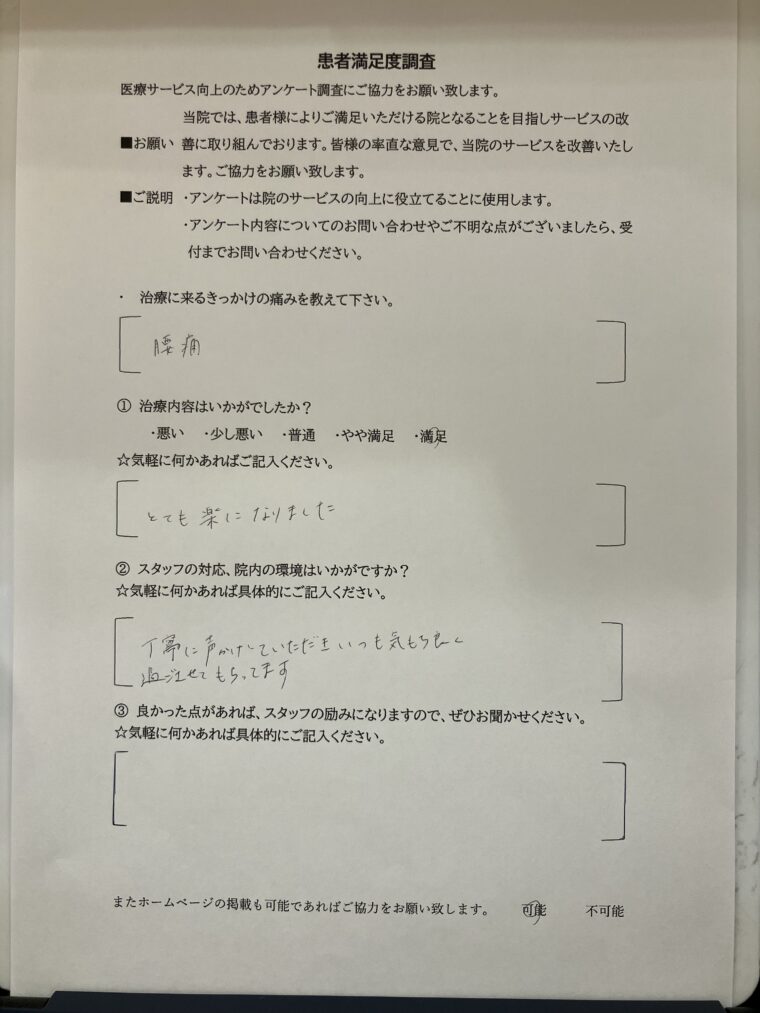 患者満足度調査
医療サービス向上のためアンケート調査にご協力をお願い致します。
当院では、患者様によりご満足いただける院となることを目指しサービスの改
■お願い 善に取り組んでおります。皆様の率直な意見で、当院のサービスを改善いたし
ます。ご協力をお願い致します。
■ご説明 ・アンケートは院のサービスの向上に役立てることに使用します。
・アンケート内容についてのお問い合わせやご不明な点がございましたら、受
付までお問い合わせください。
・ 治療に来るきっかけの痛みを教えて下さい。
腰痛
① 治療内容はいかがでしたか？
・悪い ・少し悪い ・普通 ・やや満足 ・満足
☆気軽に何かあればご記入ください。
とても楽になりました
② スタッフの対応、院内の環境はいかがですか？
☆気軽に何かあれば具体的にご記入ください。
丁寧に声かけしていただきいつも気もち良く
過ごせてもらってます
③ 良かった点があれば、スタッフの励みになりますので、ぜひお聞かせください。
☆気軽に何かあれば具体的にご記入ください。
またホームページの掲載も可能であればご協力をお願い致します。 可能 不可能